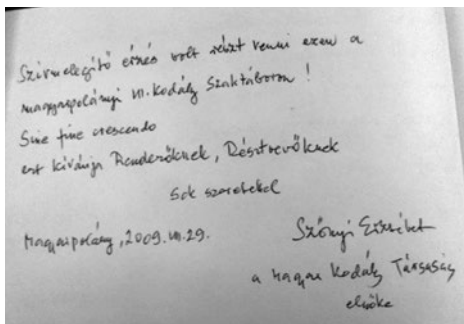 Szívmelegítő érzés volt részt venni ezen a
magyarpolányi VI. Kodály Szaktáboron!
Sine fine crescendo
ezt kívánja Rendezőknek, Résztvevőknek
Sok szeretettel
Magyarpolány, 2009. VII. 29.
Szőnyi Erzsébet
a Magyar Kodály Társaság
elnöke